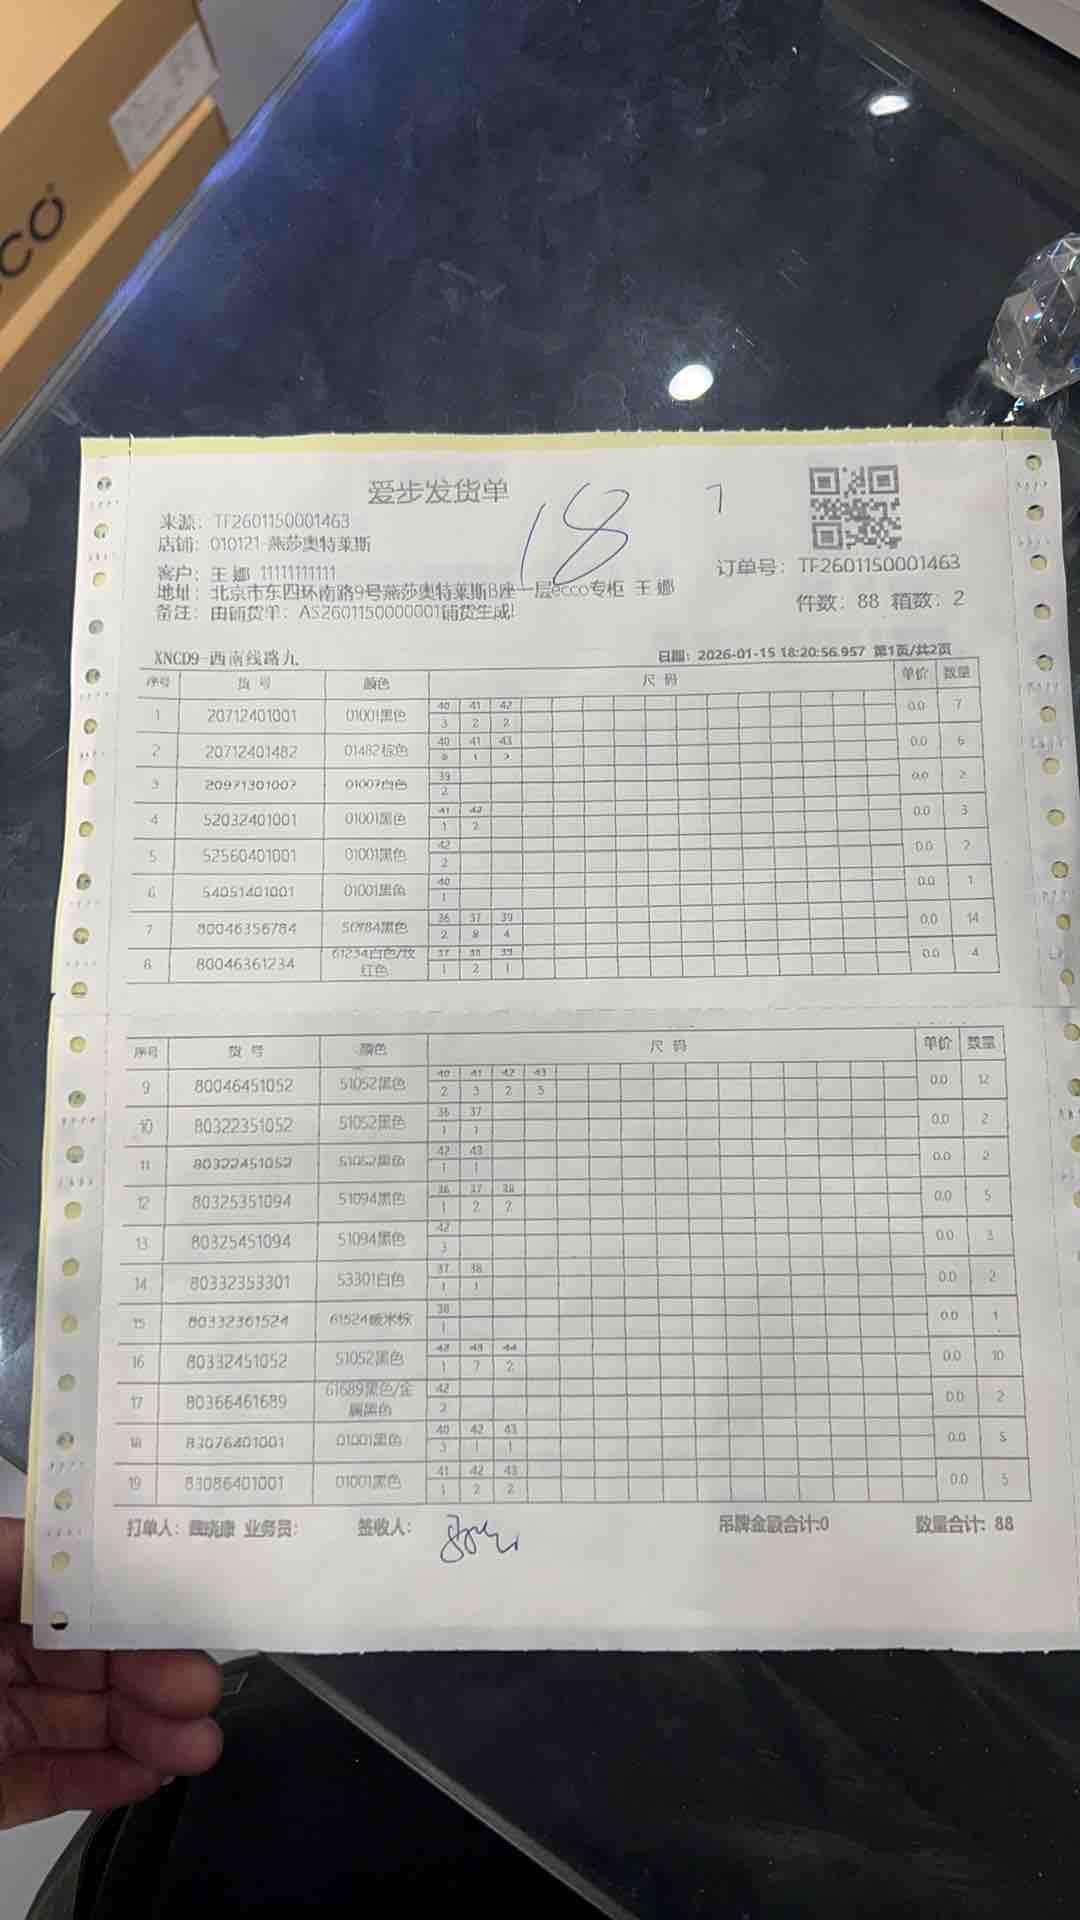 CCO
爱步发货单
18
7
来源：TF2601150001463
店铺：010121-燕莎奥特莱斯
客户：王 娜 11111111111
订单号：TF2601150001463
地址：北京市东四环南路9号燕莎奥特莱斯B座一层ecco专柜 王 娜
件数：88 箱数：2
备注：由铺货单：AS2601150000001铺货生成!
XNCD9-西南线路九
日期：2026-01-15 18:20:56.957 第1页/共2页
序号 货 号 颜色 尺 码 单价 数量
40 41 42
1 20712401001 01001黑色 0.0 7
3 2 2
40 41 43
2 20712401482 01482棕色 0.0 6
1
39
3 20971301007 01007白色 0.0 2
2
41 42
4 52032401001 01001黑色 0.0 3
1 2
42
5 52560401001 01001黑色 0.0 2
2
40
6 54051401001 01001黑色 0.0 1
1
36 37 39
7 80046356784 56784黑色 0.0 14
2 8 4
37 38 39
8 80046361234 61234白色/玫红色 0.0 4
1 2 1
序号 货 号 颜色 尺 码 单价 数量
40 41 42 43
9 80046451052 51052黑色 0.0 12
2 3 2 5
36 37
10 80322351052 51052黑色 0.0 2
1 1
42 43
11 80322451052 51052黑色 0.0 2
1 1
36 37 38
12 80325351094 51094黑色 0.0 5
1 2 2
42
13 80325451094 51094黑色 0.0 3
3
37 38
14 80332353301 53301白色 0.0 2
1 1
38
15 80332361524 61524暖米棕 0.0 1
1
42 43 44
16 80332451052 51052黑色 0.0 10
1 7 2
42
17 80366461689 61689黑色/金属黑色 0.0 2
2
40 42 43
18 83076401001 01001黑色 0.0 5
3 1 1
41 42 43
19 83086401001 01001黑色 0.0 5
1 2 2
打单人：魏晓康 业务员： 签收人： 吊牌金额合计:0 数量合计: 88